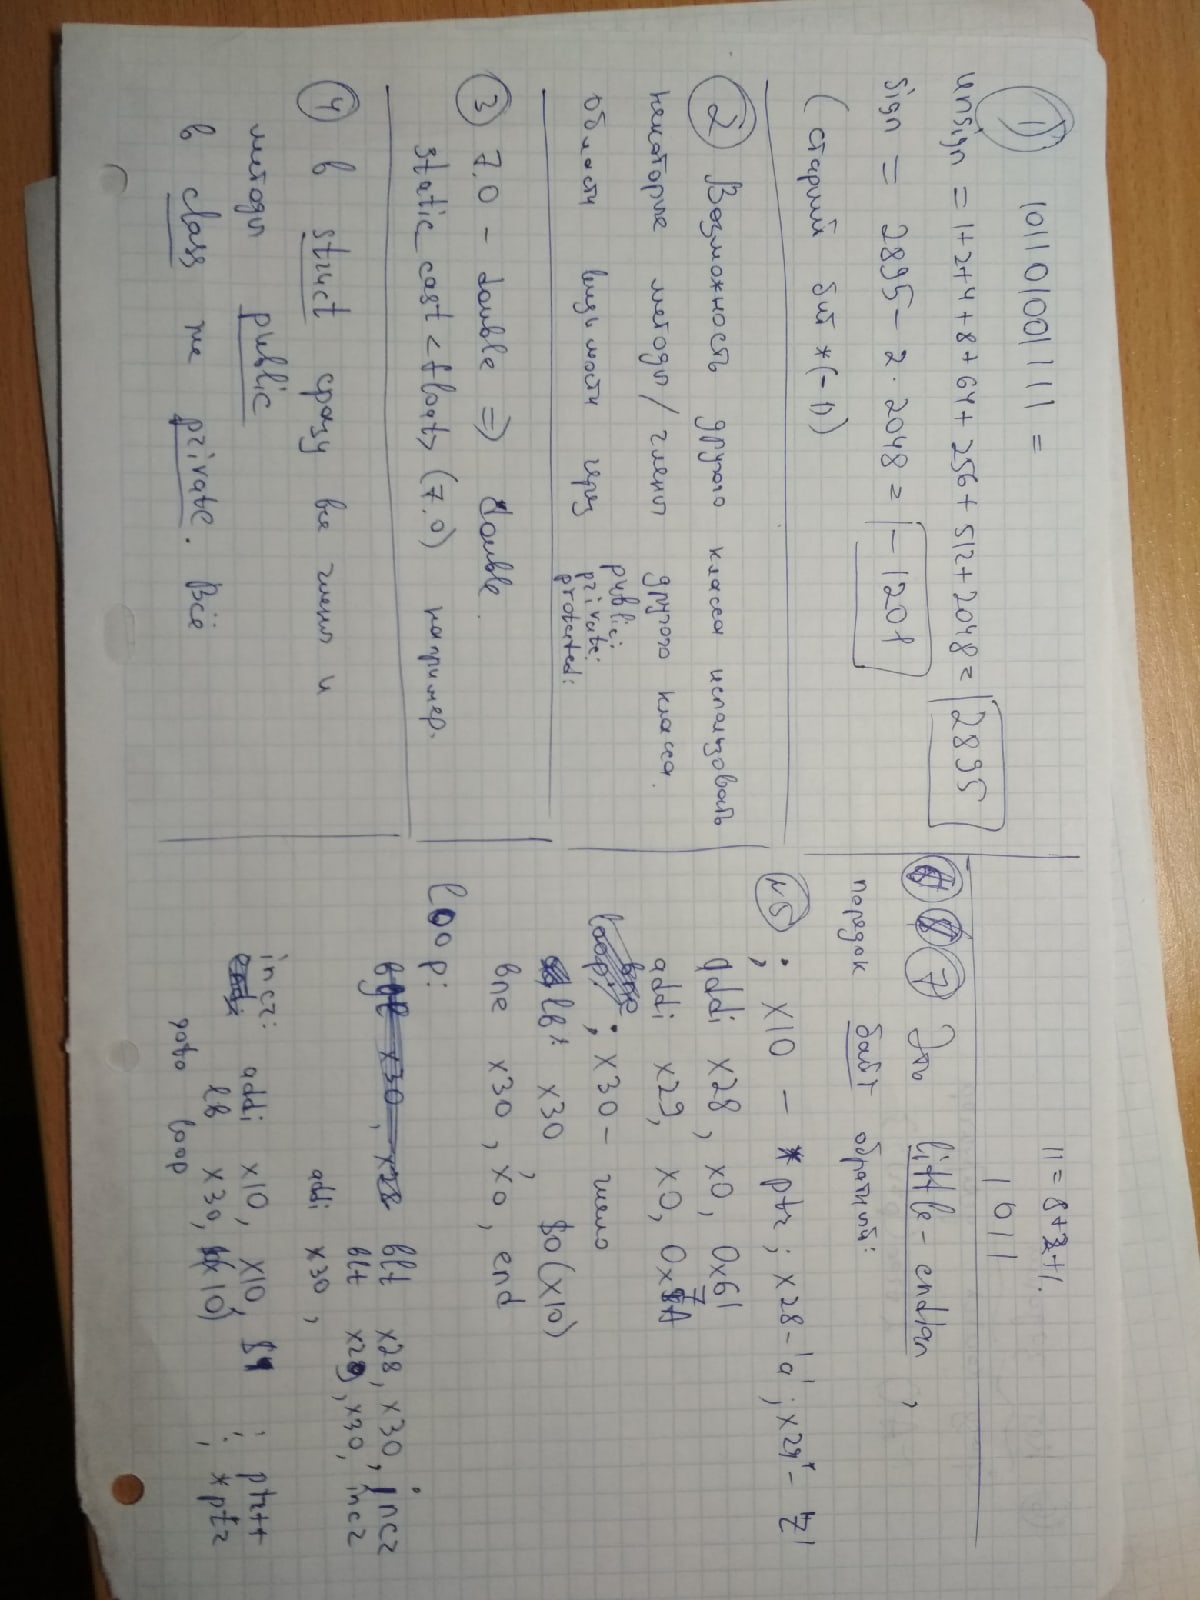 1
101101001111 =
unsign = 1+2+4+8+64+256+512+2048= 2895
sign = 2895 - 2·2048 = -1201
(старший бит *(-1))
2 Возможность другого класса использовать
некоторые методы/члены другого класса.
области видимости через public: private: protected:
3 7.0 - double => double.
static_cast<float>(7.0) например.
4 в struct сразу все члены и
методы public
в class же private. Всё
11 = 8+2+1.
1011
7 Это little-endian,
порядок байт обратный:
№6 ; x10 - *ptr; x28-'a'; x29-'z'
addi x28, x0, 0x61
addi x29, x0, 0x7A
; x30 - число
lb x30, 0(x10)
bne x30, x0, end
loop:
blt x28, x30, incr
blt x29, x30, incr
addi x30,
incr: addi x10, x10, 4 ; ptr++
lb x30, (x10) ; *ptr
goto loop